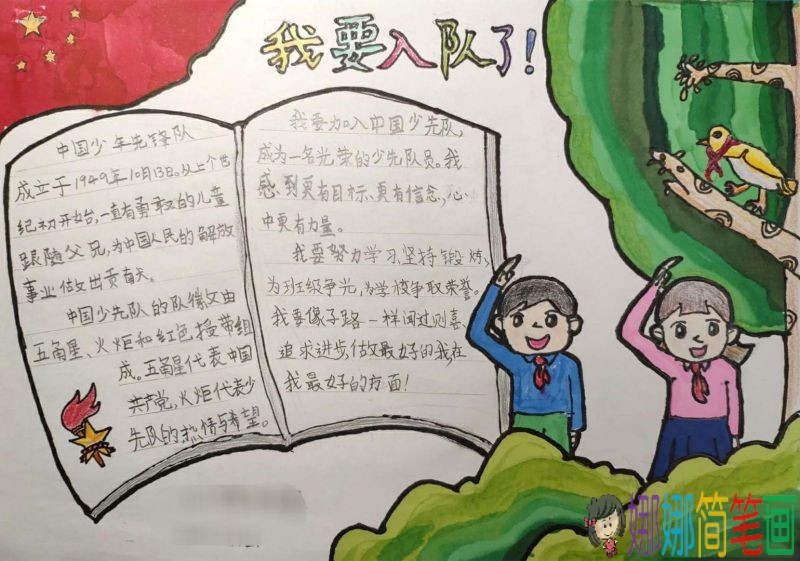 我要入队了!
中国少年先锋队
成立于1949年10月13日。从上个世
纪初开始,一直有勇敢的儿童
跟随父兄,为中国人民的解放
事业做出贡献。
中国少先队的队徽又由
五角星、火炬和红色授带组
成。五角星代表中国
共产党,火炬代表少
先队的热情与希望。
我要加入中国少先队,
成为一名光荣的少先队员。我
感到更有目标、更有信念,心
中更有力量。
我要努力学习,坚持锻炼,
为班级争光,为学校争取荣誉。
我要像子路一样闻过则喜,
追求进步,做最好的我,在
我最好的方面!
娜娜简笔画